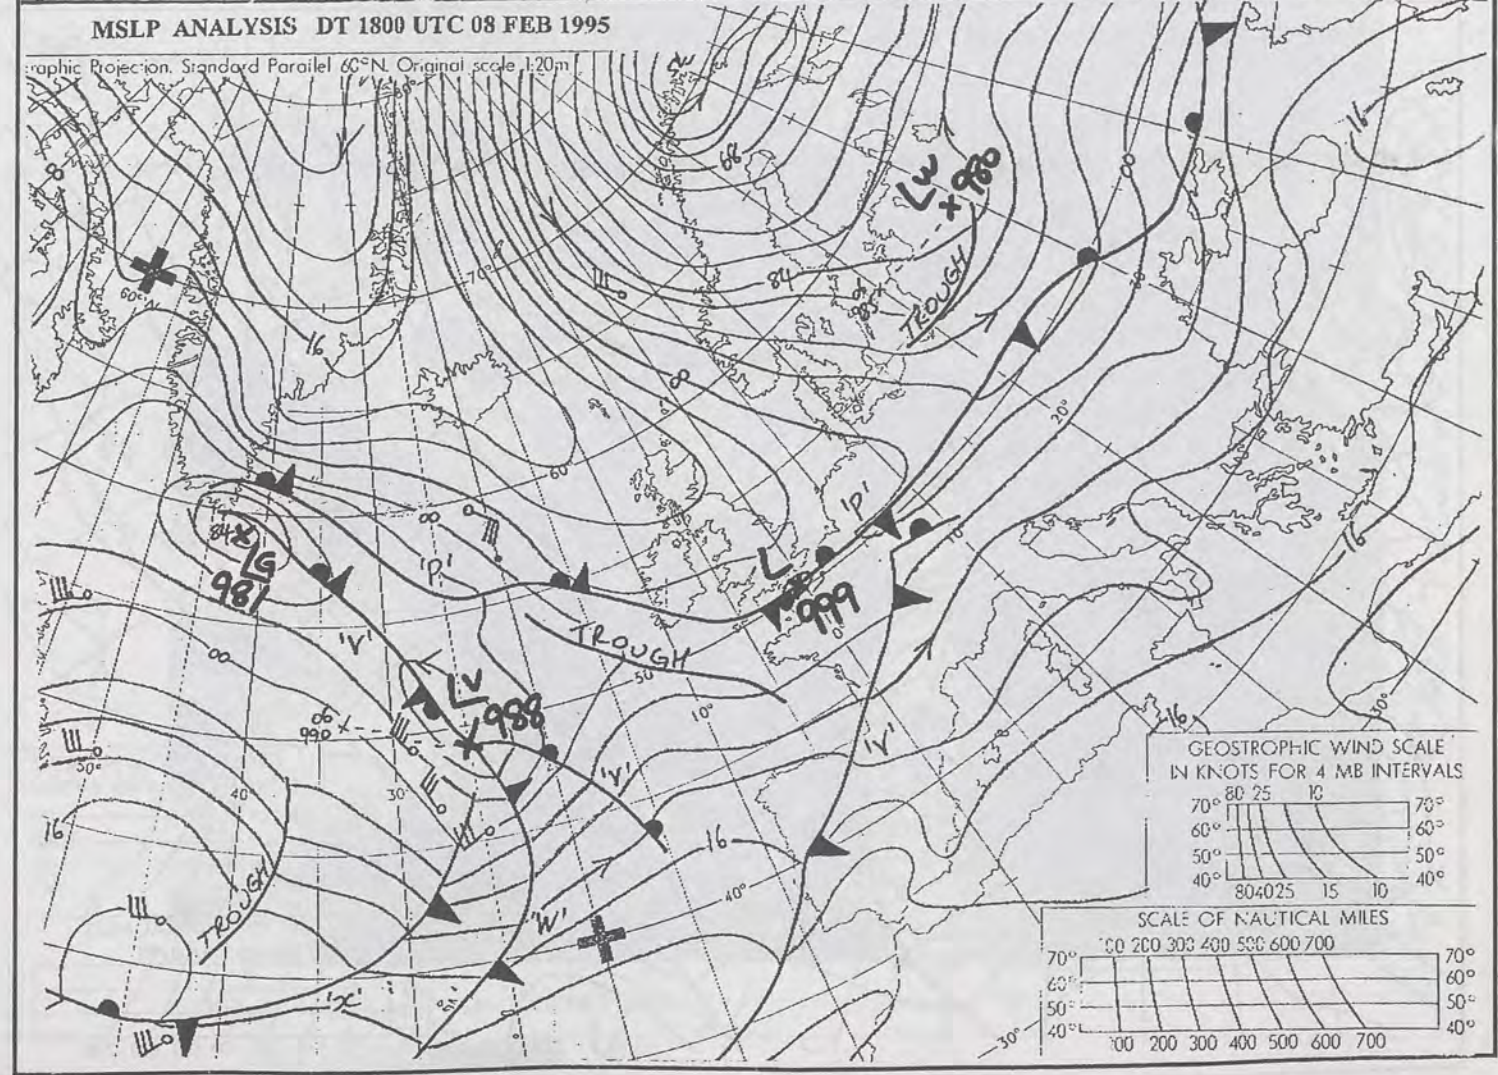 MSLP ANALYSIS DT 1800 UTC 08 FEB 1995
raphic Projection. Standard Parallel 60°N. Original scale 1:20m
80°
68
16
8
L W
+ 980
0
84
TROUGH
60°N
70°
06
985
16
8
20°
60°
'P'
00
84
L G
981
'P'
L
999
10°
0°
16
'V'
TROUGH
00
50°
L V
988
06
990
10°
'V'
'V'
30°
16
50°
40
30
16
TROUGH
16
40°
'W'
'X'
30°
GEOSTROPHIC WIND SCALE
IN KNOTS FOR 4 MB INTERVALS
80 25 10
70° 70°
60° 60°
50° 50°
40° 40°
80 40 25 15 10
SCALE OF NAUTICAL MILES
100 200 300 400 500 600 700
70° 70°
60° 60°
50° 50°
40° 40°
100 200 300 400 500 600 700